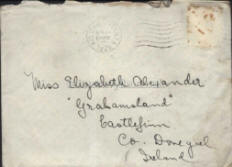 Miss Elizabeth Alexander
"Grahamsland"
Castlefinn
Co. Donegal
Ireland